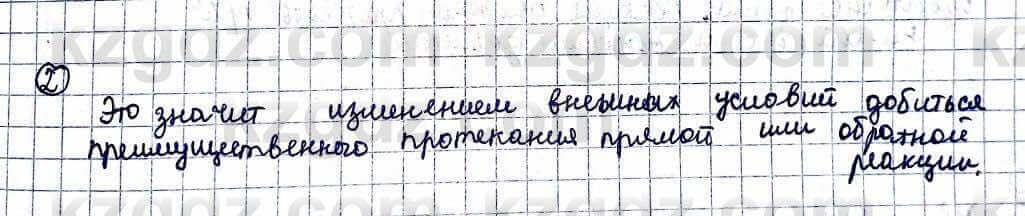 kzgdz.com kzgdz.com
② Это значит изменением внешних условий добиться
преимущественного протекания прямой или обратной
реакции.
kzgdz.com kzgdz.com